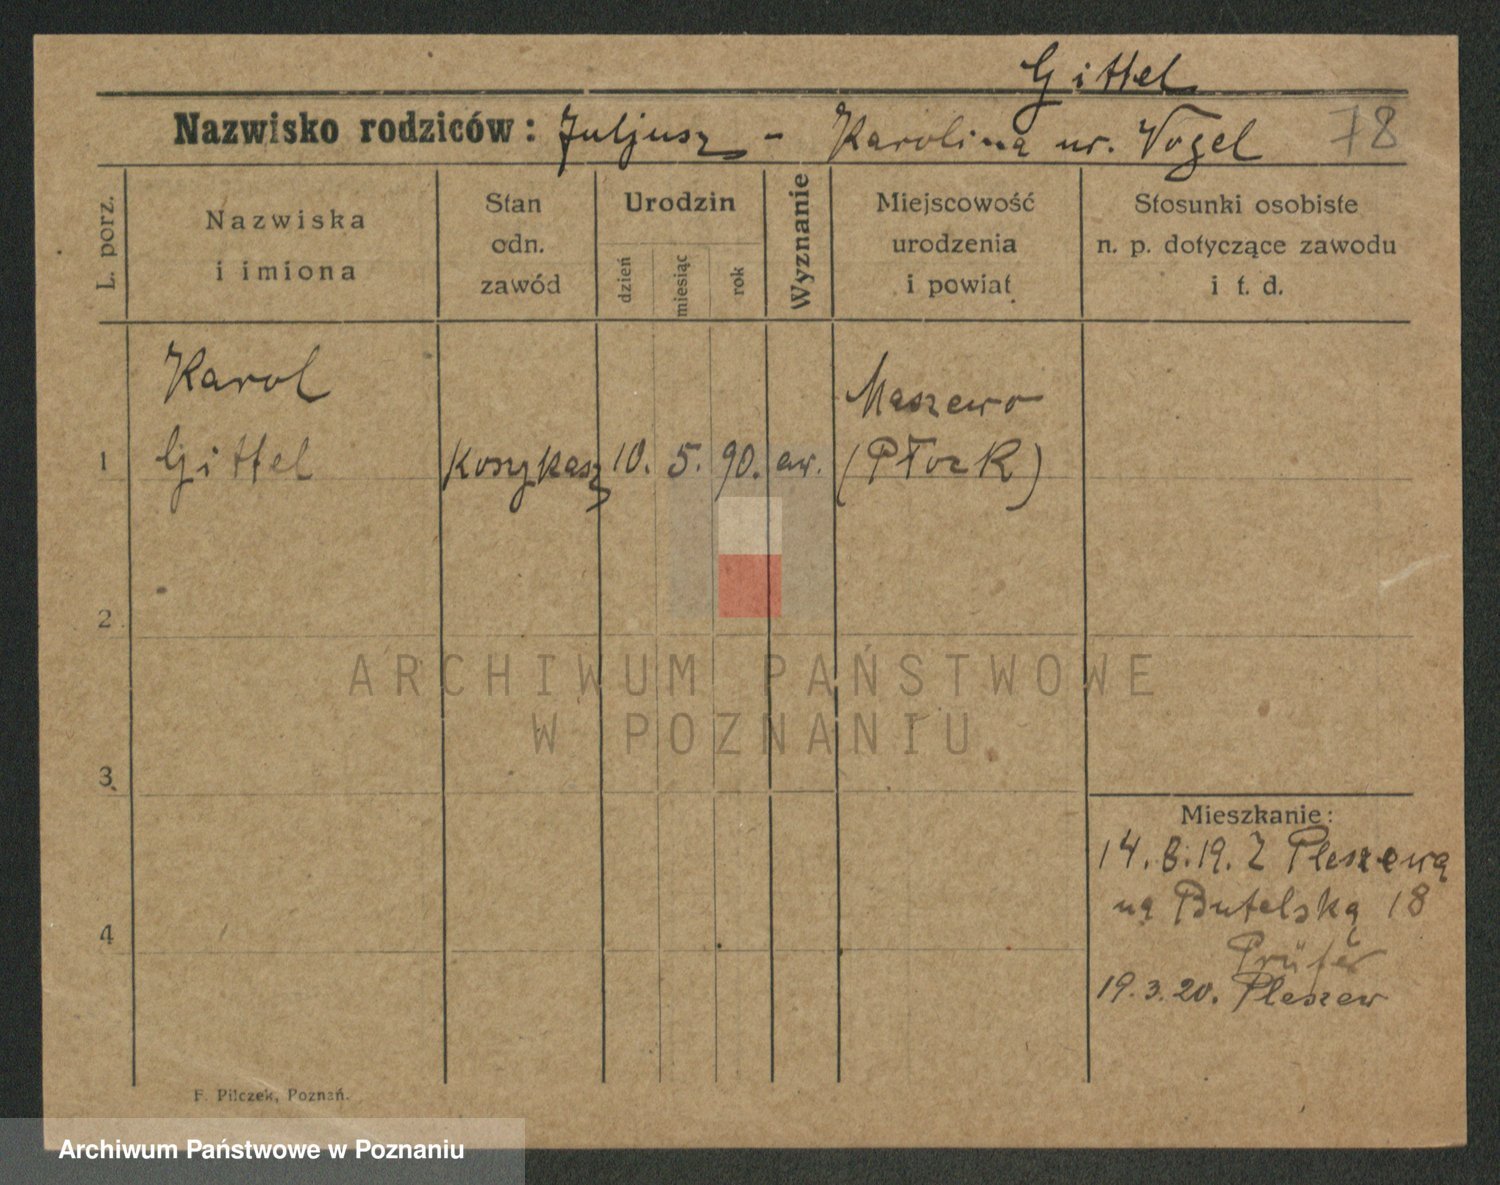 Gittel
Nazwisko rodziców: Juljusz - Karolina ur. Vogel 78
L. porz.
Nazwiska
i imiona
Stan
odn.
zawód
Urodzin
dzień
miesiąc
rok
Wyznanie
Miejscowość
urodzenia
i powiat
Stosunki osobiste
n. p. dotyczące zawodu
i t. d.
Karol
Maszewo
1 Gittel Koszykasz 10. 5. 90. ew. (Płock)
2
ARCHIWUM PAŃSTWOWE
W POZNANIU
3
Mieszkanie:
14.8.19. Z Pleszewa
na Butelską 18
4
Prüfer
19.3.20. Pleszew
F. Pilczek, Poznań.
Archiwum Państwowe w Poznaniu